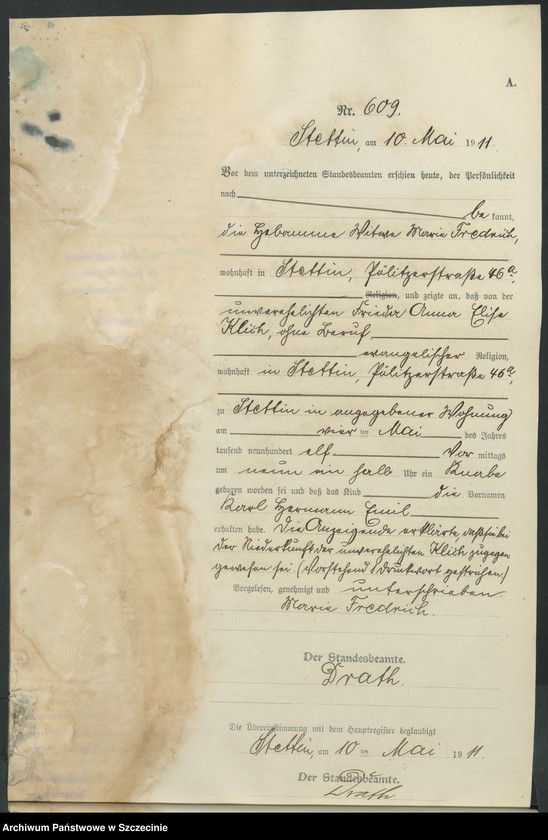 A.
Nr. 609.
Stettin, am 10. Mai 1911.
Vor dem unterzeichneten Standesbeamten erschien heute, der Persönlichkeit
nach
be kannt,
die Hebamme Witwe Marie Fredrich,
wohnhaft in Stettin, Pölitzerstraße 46a,
Religion, und zeigte an, daß von der
unverehelichten Frieda Anna Elise
Klich, ohne Beruf
evangelischer Religion,
wohnhaft in Stettin, Pölitzerstraße 46a,
zu Stettin in angegebener Wohnung
am vier ten Mai des Jahres
tausend neunhundert elf Vor mittags
um neun ein halb Uhr ein Knabe
geboren worden sei und daß das Kind die Vornamen
Karl Hermann Emil
erhalten habe. Die Anzeigende erklärte, daß sie bei
der Niederkunft der unverehelichten Klich zugegen
gewesen sei (Vorstehend 1 Druckwort gestrichen.)
Vorgelesen, genehmigt und unterschrieben.
Marie Fredrich.
Der Standesbeamte.
Drath.
Die Übereinstimmung mit dem Hauptregister beglaubigt
Stettin, am 10 ten Mai 1911.
Der Standesbeamte.
Drath
Archiwum Państwowe w Szczecinie